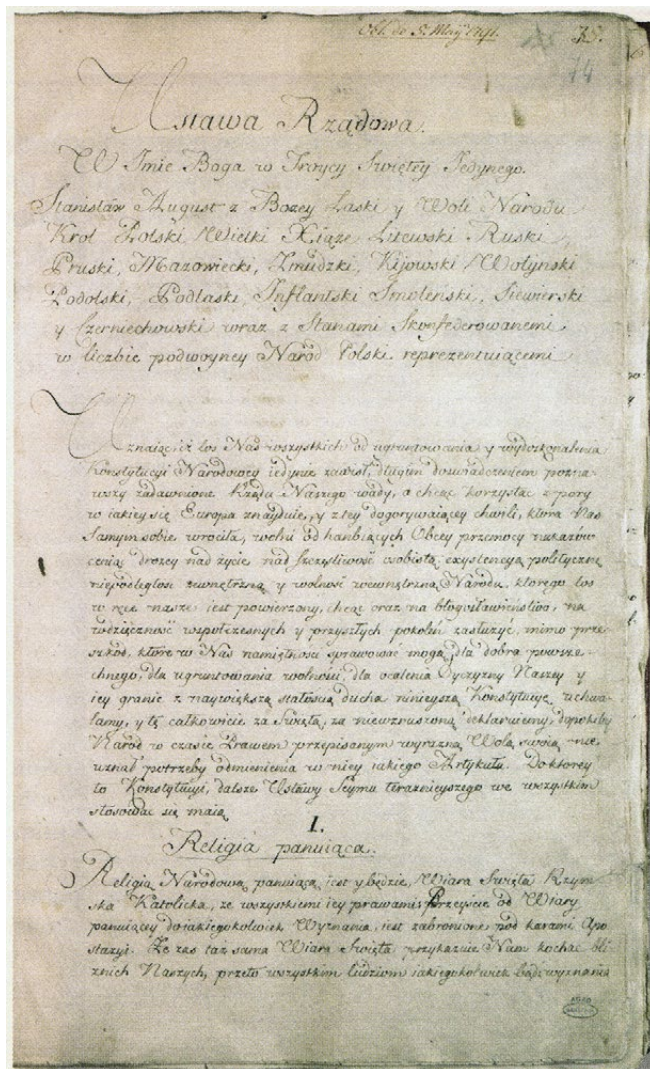 Obl. do 5. Maij 1791.
14
Ustawa Rządowa.
W Jmie Boga w Troycy Swiętey Jedynego.
Stanisław August z Bożey Łaski y Woli Narodu
Krol Polski Wielki Xiąże Litewski Ruski
Pruski, Mazowiecki, Zmudzki, Kijowski Wołynski
Podolski, Podlaski, Jnflantski Smolenski, Siewierski
y Czerniechowski wraz z Stanami Skonfederowanemi
w liczbie podwoyney Naród Polski reprezentuiącemi
Uznaiąc, iż los Nas wszystkich od ugruntowania y wydoskonalenia
Konstytucyi Narodowey iedynie zawisł, długim doswiadczeniem pozna-
wszy zadawnione Rządu Naszego wady, a chcąc korzystac z pory
w iakiey się Europa znayduie, y z tey dogorywaiącey chwili, która Nas
samym sobie wrociła, wolni od hanbiących Obcey przemocy nakazów
ceniąc drożey nad życie nad szczęśliwość osobistą, exystencyą polityczną
niepodległość zewnętrzną y wolnosc wewnętrzną Narodu, ktorego los
w ręce nasze iest powierzony, chcąc oraz na błogosławieństwo, na
wdzięcznosc wspołczesnych y przyszłych pokoleń zasłużyć, mimo prze-
szkód, które w Nas namiętnosci sprawować mogą, dla dobra powsze-
chnego, dla ugruntowania wolnosci, dla ocalenia Oyczyzny Naszey y
iey granic z naywiększą stałoscią ducha ninieyszą Konstytucyę uchwa-
lamy, y tę całkowicie za Swiętą, za niewzruszoną deklaruiemy, dopokiby
Naród w czasie Prawem przepisanym wyrazną Wolą swoią nie
uznał potrzeby odmienienia w niey iakiego Artykułu. Do ktorey
to Konstytucyi, dalsze Ustawy Seymu teraznieyszego we wszystkim
stosować się maią
I.
Religia panuiąca.
Religią Narodową panuiącą iest y będzie, Wiara Swięta Rzym-
ska Katolicka, ze wszystkiemi iey prawami. Przeyście od Wiary
panuiącey do iakiegokolwiek Wyznania, iest zabronione pod karami Apo-
stazyi. Że zas taż sama Wiara Swięta przykazuie Nam kochać bli-
znich Naszych, przeto wszystkim ludziom iakiegokolwiek bądź wyznania